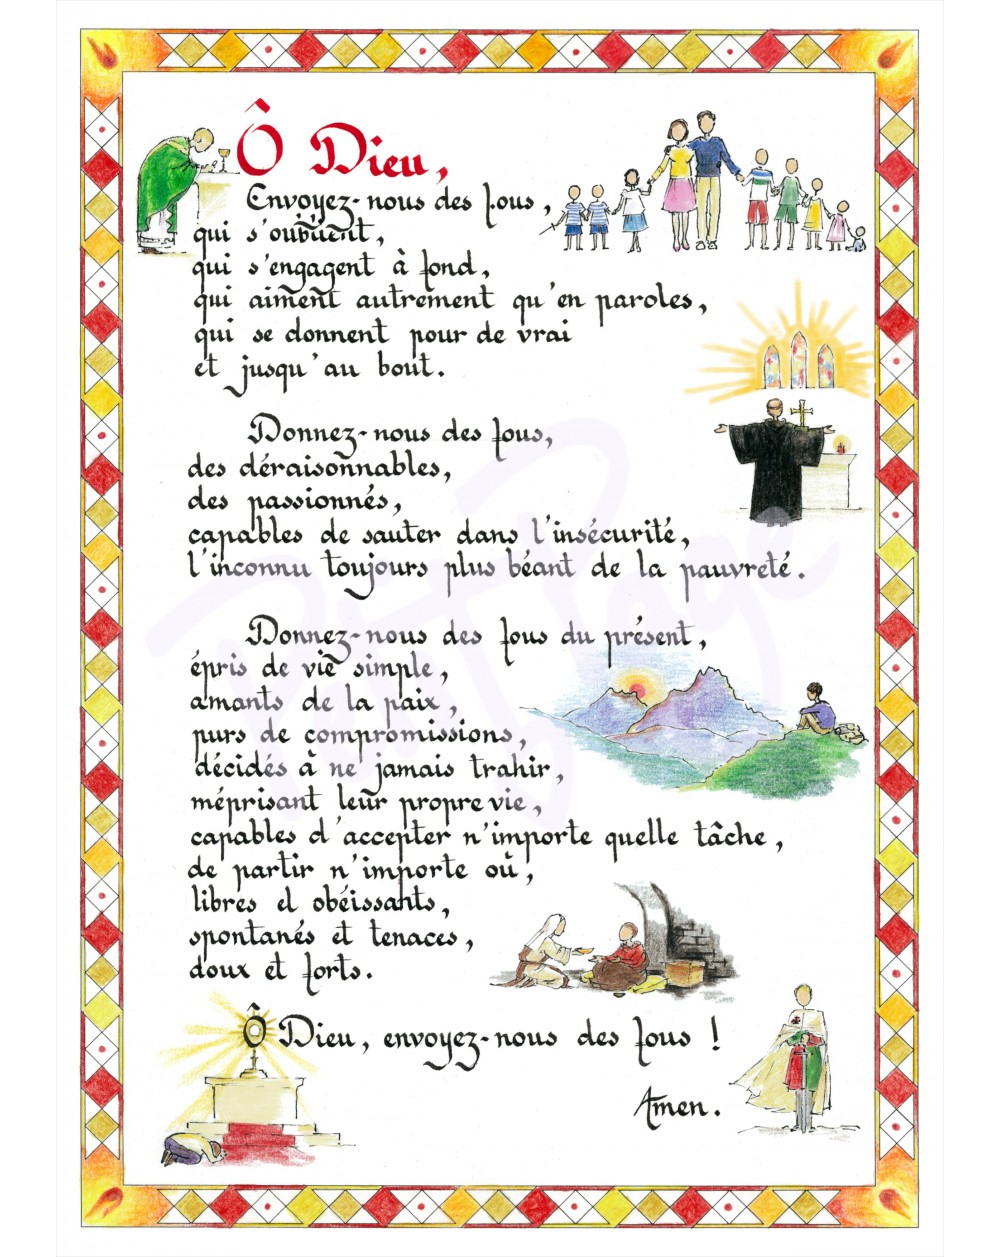 Ô Dieu,
Envoyez-nous des fous,
qui s'oublient,
qui s'engagent à fond,
qui aiment autrement qu'en paroles,
qui se donnent pour de vrai
et jusqu'au bout.
Donnez-nous des fous,
des déraisonnables,
des passionnés,
capables de sauter dans l'insécurité,
l'inconnu toujours plus béant de la pauvreté.
Donnez-nous des fous du présent,
épris de vie simple,
amants de la paix,
purs de compromissions,
décidés à ne jamais trahir,
méprisant leur propre vie,
capables d'accepter n'importe quelle tâche,
de partir n'importe où,
libres et obéissants,
spontanés et tenaces,
doux et forts.
Ô Dieu, envoyez-nous des fous !
Amen.